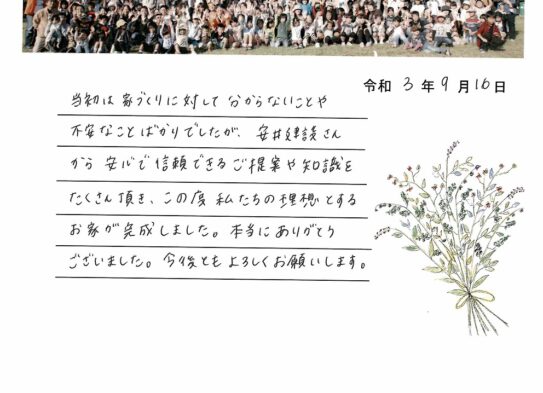 令和 3 年 9 月 16 日
当初は家づくりに対して分からないことや
不安なことばかりでしたが、安井建設さん
から安心で信頼できるご提案や知識を
たくさん頂き、この度私たちの理想とする
お家が完成しました。本当にありがとう
ございました。今後ともよろしくお願いします。